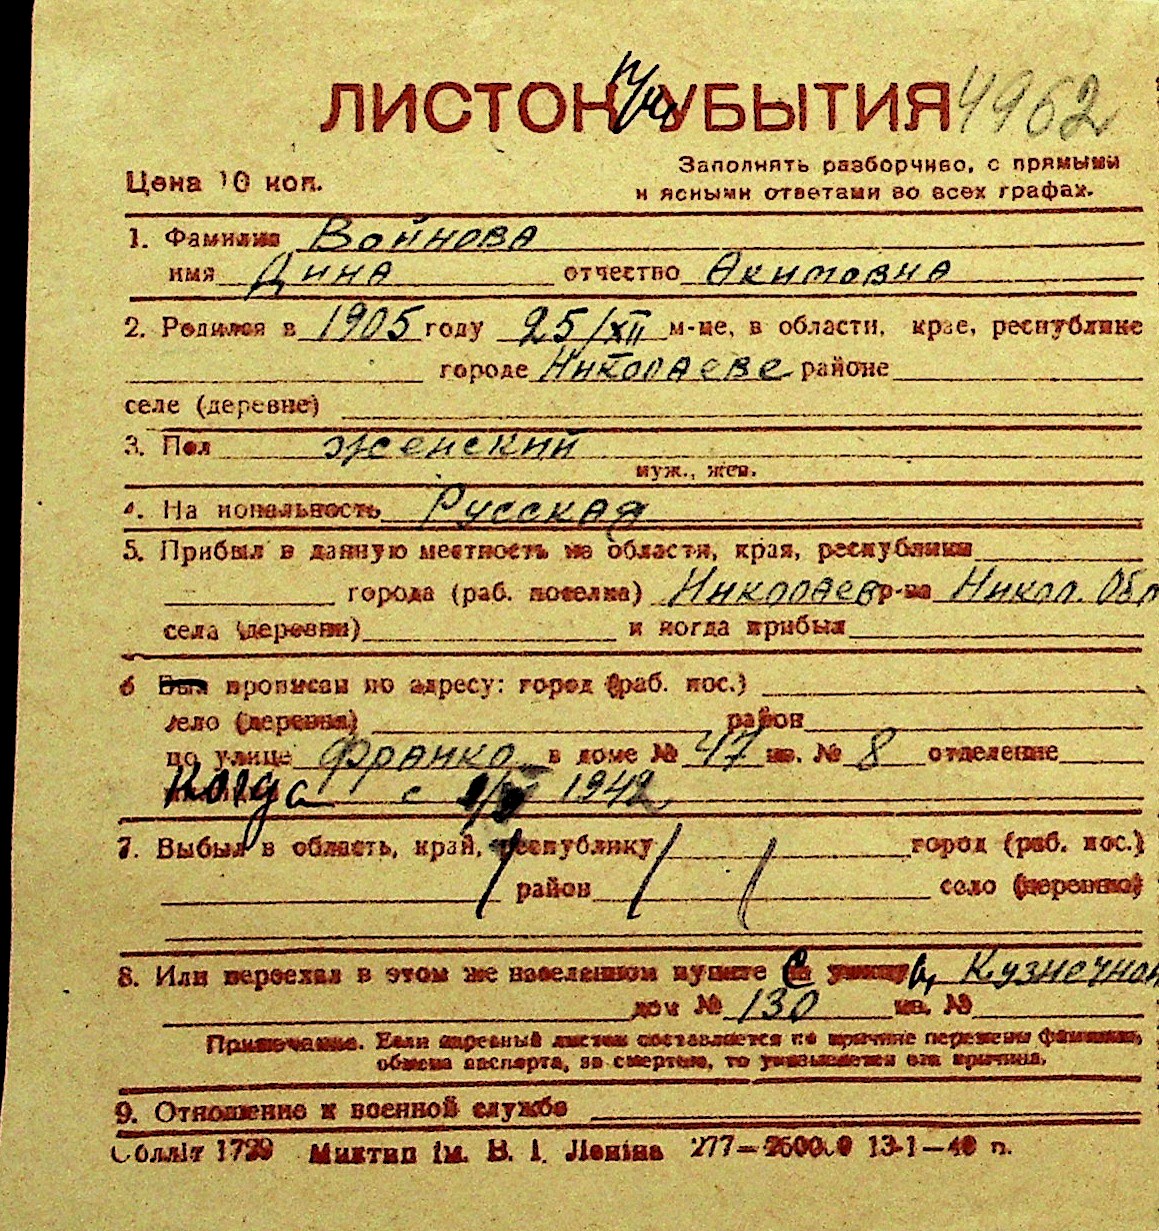 ЛИСТОК УБЫТИЯ 4962
Цена 10 коп.
Заполнять разборчиво, с прямыми
и ясными ответами во всех графах.
1. Фамилия Войнова
имя Дина отчество Акимовна
2. Родился в 1905 году 25/XII м-це, в области, крае, республике
городе Николаеве районе
селе (деревне)
3. Пол женский
муж., жен.
4. На иональность Русская
5. Прибыл в данную местность из области, края, республики
города (раб. поселка) Николаев р-на Никол. Обл
села (деревни) и когда прибыл
6 Был прописан по адресу: город (раб. пос.)
село (деревня) район
по улице Франко в доме № 47 кв. № 8 отделение
Когда с 1942
7. Выбыл в область, край, республику город (раб. пос.)
район село (деревню)
8. Или переехал в этом же населенном пункте с улицы Кузнечной
дом № 130 кв. №
Примечание. Если адресный листок составляется по причине перемены фамилии,
обмена паспорта, за смертью, то указывается эта причина.
9. Отношение к военной службе
Облліт 1729 Миктип ім. В. І. Леніна 277— 13-1—40 п.